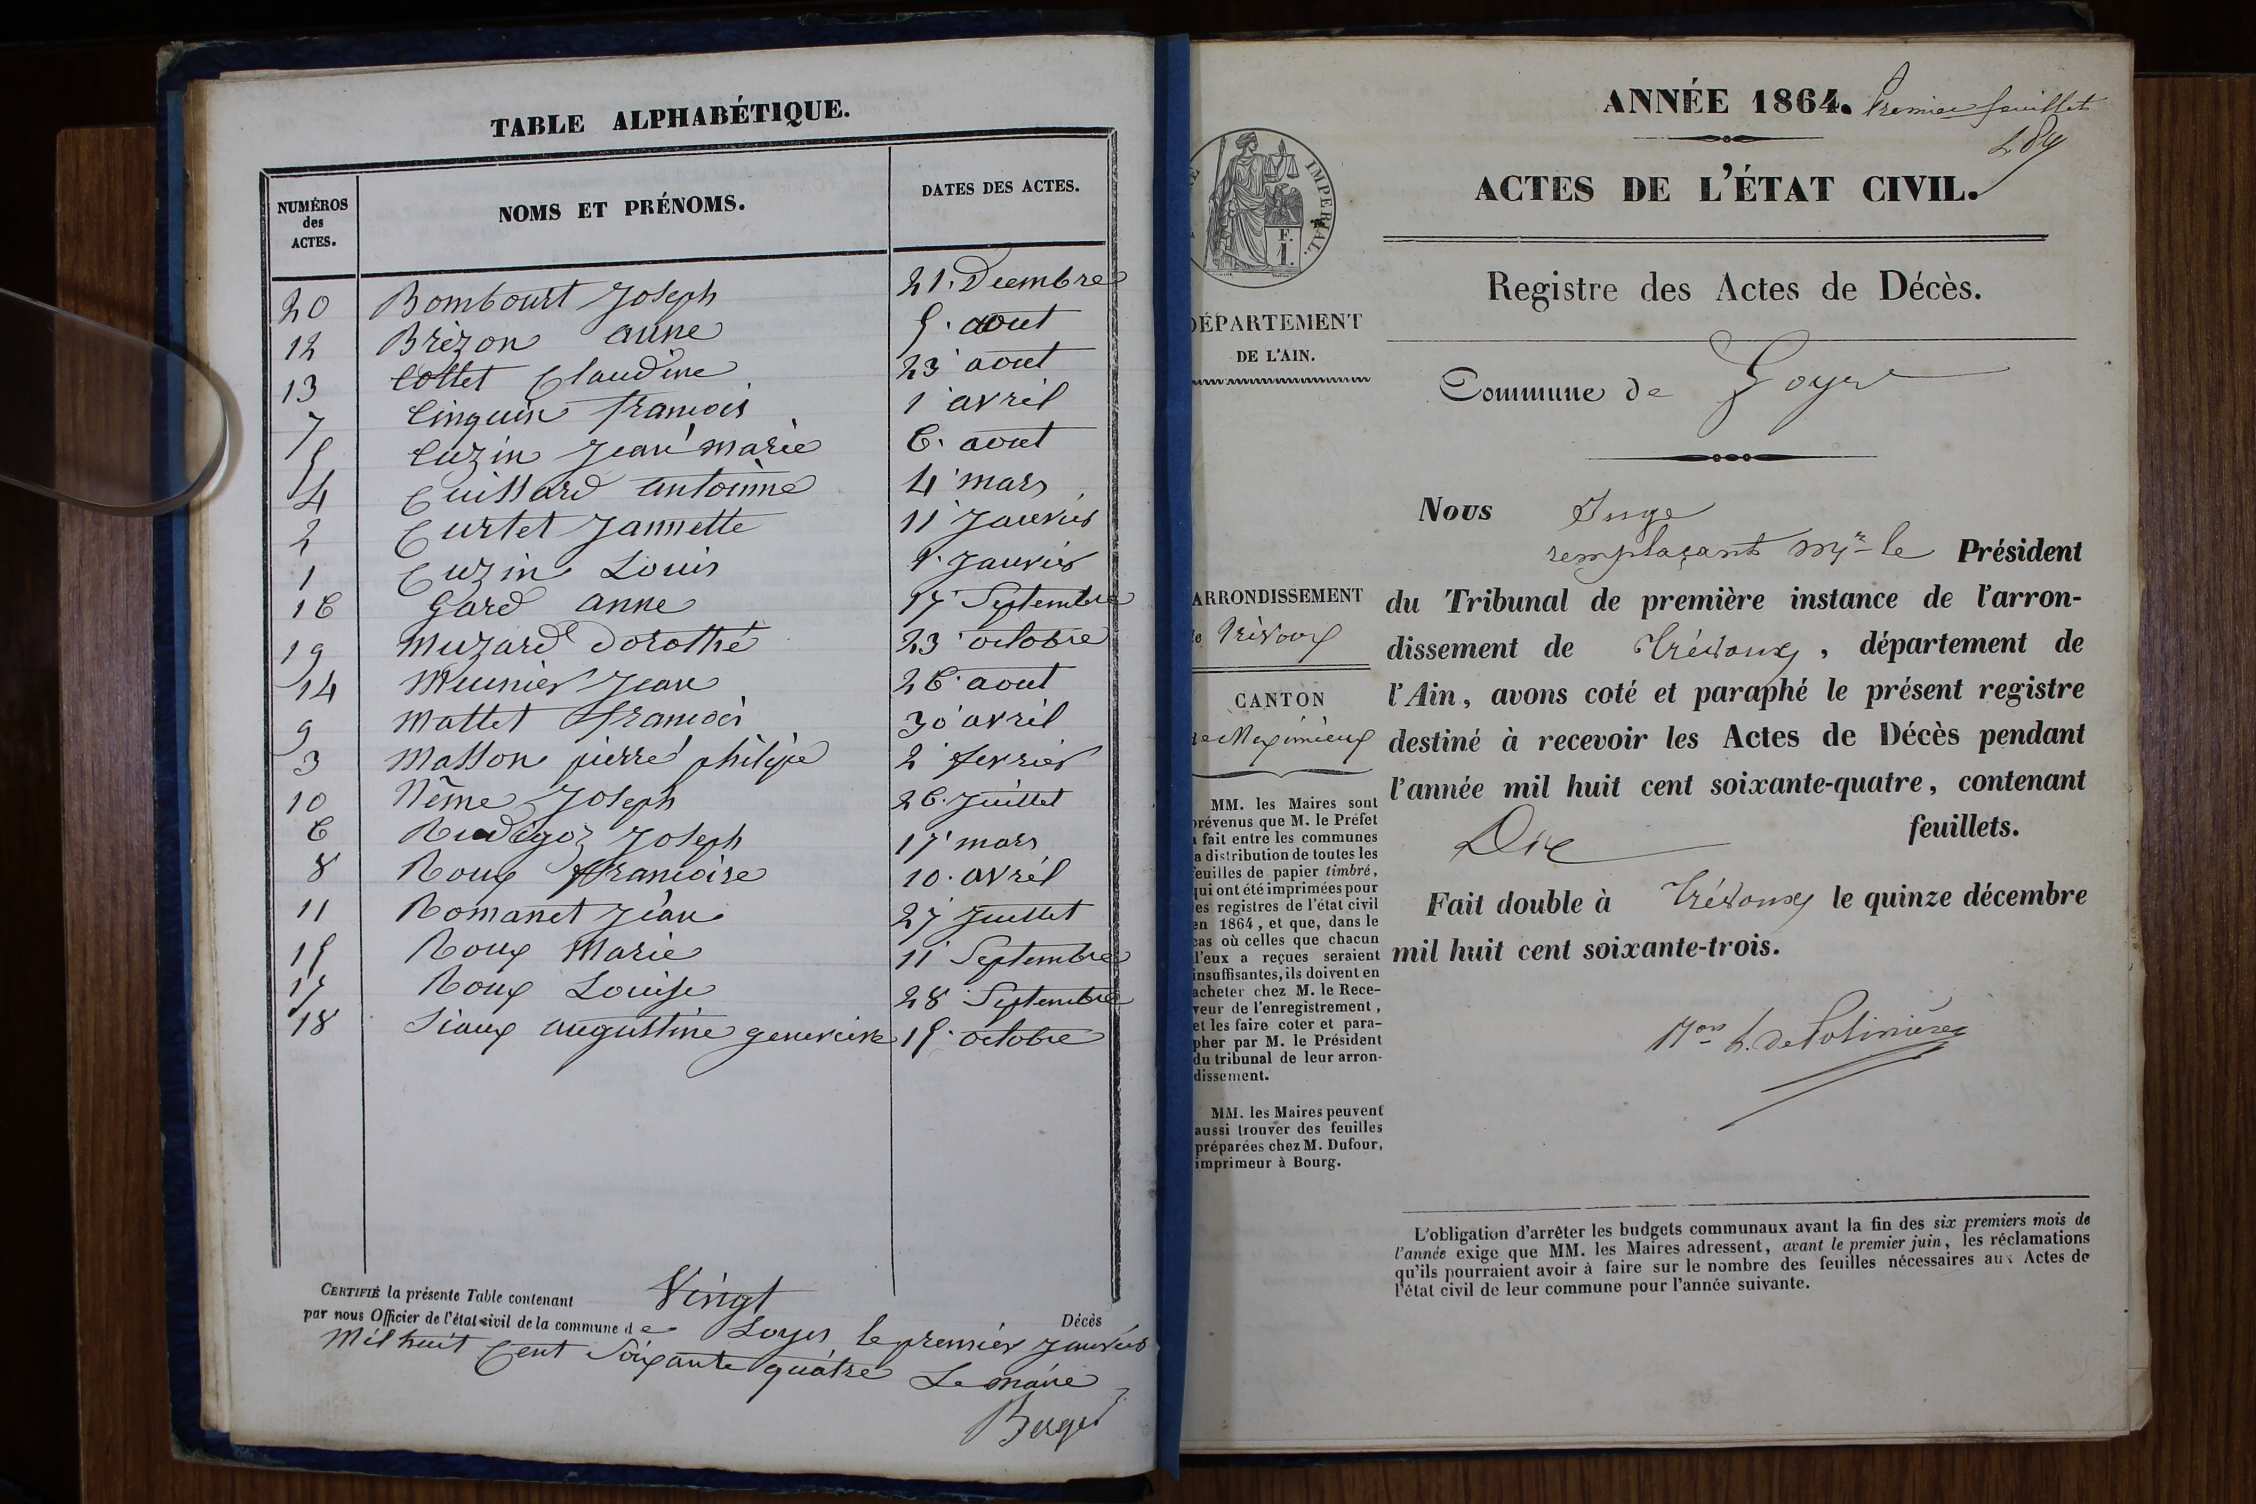 TABLE ALPHABÉTIQUE.
NUMÉROS des ACTES. NOMS ET PRÉNOMS. DATES DES ACTES.
20 Bombourt Joseph 21. Decembre
12 Brézon anne 5. aout
13 Collet Claudine 23 aout
7 Cinquin francois 1 avril
5 Cuzin Jean marie 6. aout
4 Cuissard antoinne 4 mars
2 Curtet Jannette 11 Janvier
1 Cuzin Louis Janvier
16 Gard anne 17 Septembre
19 Muzard dorothé 23 octobre
14 Meunier Jean 26. aout
9 Mattet francois 30 avril
3 Masson pierre philipe 2 fevrier
10 Néme Joseph 26. Juillet
6 Rudigoz Joseph 17 mars
8 Roux francoise 10. avril
11 Romanet Jean 27 Juillet
15 Roux Marie 11 Septembre
17 Roux Louise 28 Septembre
18 Siaux augustine genevieve 15. octobre
CERTIFIÉ la présente Table contenant Vingt Décès
par nous Officier de l'état civil de la commune de Loyes le premier Janvier
Mil huit Cent Soixante quatre Le maire
Berger
ANNÉE 1864. Premier feuillet
289
ACTES DE L'ÉTAT CIVIL.
IMPERIAL.
F.
1.
Registre des Actes de Décès.
DÉPARTEMENT
DE L'AIN.
Commune de Loyes
Nous Juge
remplaçant Mr le Président
du Tribunal de première instance de l'arron-
dissement de Trévoux, département de
l'Ain, avons coté et paraphé le présent registre
destiné à recevoir les Actes de Décès pendant
l'année mil huit cent soixante-quatre, contenant
Dix feuillets.
Fait double à Trévoux le quinze décembre
mil huit cent soixante-trois.
ARRONDISSEMENT
de Trévoux
CANTON
de Meximieux
MM. les Maires sont
prévenus que M. le Préfet
a fait entre les communes
la distribution de toutes les
feuilles de papier timbré,
qui ont été imprimées pour
les registres de l'état civil
en 1864, et que, dans le
cas où celles que chacun
d'eux a reçues seraient
insuffisantes, ils doivent en
acheter chez M. le Rece-
veur de l'enregistrement,
et les faire coter et para-
pher par M. le Président
du tribunal de leur arron-
dissement.
MM. les Maires peuvent
aussi trouver des feuilles
préparées chez M. Dufour,
imprimeur à Bourg.
L'obligation d'arrêter les budgets communaux avant la fin des six premiers mois de
l'année exige que MM. les Maires adressent, avant le premier juin, les réclamations
qu'ils pourraient avoir à faire sur le nombre des feuilles nécessaires aux Actes de
l'état civil de leur commune pour l'année suivante.